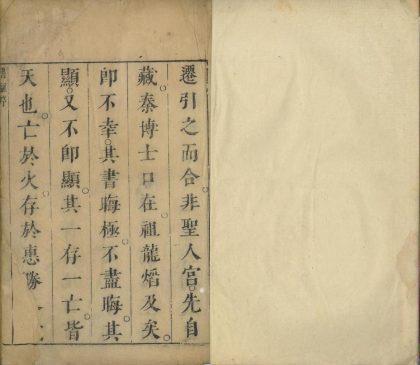 遷引之而合非聖人宫先自
藏秦博士口在祖龍熸及矣
卽不幸其書晦極不盡晦其
顯又不卽顯其一存一亡皆
天也亡於火存於惠隊一